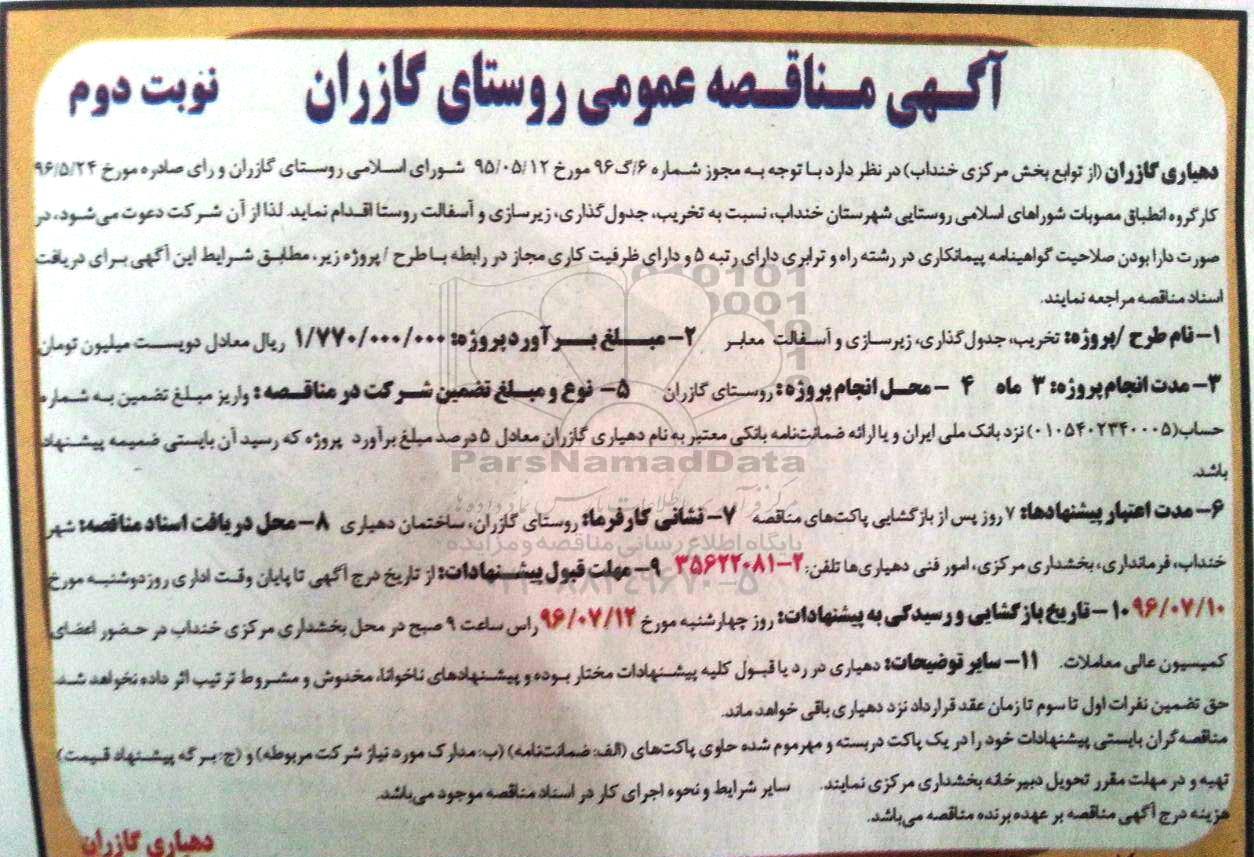 آگهی مناقصه عمومی روستای گازران نوبت دوم
دهیاری گازران (از توابع بخش مرکزی خنداب) در نظر دارد با توجه به مجوز شماره ۶/گ/۹۶ مورخ ۹۵/۰۵/۱۲ شورای اسلامی روستای گازران و رای صادره مورخ ۹۶/۵/۲۴
کارگروه انطباق مصوبات شوراهای اسلامی روستایی شهرستان خنداب، نسبت به تخریب، جدول‌گذاری، زیرسازی و آسفالت روستا اقدام نماید. لذا از آن شرکت دعوت می‌شود، در
صورت دارا بودن صلاحیت گواهینامه پیمانکاری در رشته راه و ترابری دارای رتبه ۵ و دارای ظرفیت کاری مجاز در رابطه با طرح / پروژه زیر، مطابق شرایط این آگهی برای دریافت
اسناد مناقصه مراجعه نمایند.
۱- نام طرح /پروژه: تخریب، جدول‌گذاری، زیرسازی و آسفالت معابر ۲- مبلغ برآورد پروژه: ۱/۷۷۰/۰۰۰/۰۰۰ ریال معادل دویست میلیون تومان
۳- مدت انجام پروژه: ۳ ماه ۴ - محل انجام پروژه: روستای گازران ۵- نوع و مبلغ تضمین شرکت در مناقصه: واریز مبلغ تضمین به شماره
حساب(۰۱۰۵۴۰۲۳۴۰۰۰۵) نزد بانک ملی ایران و یا ارائه ضمانت‌نامه بانکی معتبر به نام دهیاری گازران معادل ۵ درصد مبلغ برآورد پروژه که رسید آن بایستی ضمیمه پیشنهاد
باشد.
۶- مدت اعتبار پیشنهادها: ۷ روز پس از بازگشایی پاکت‌های مناقصه ۷- نشانی کارفرما: روستای گازران، ساختمان دهیاری ۸- محل دریافت اسناد مناقصه: شهر
خنداب، فرمانداری، بخشداری مرکزی، امور فنی دهیاری‌ها تلفن: ۲-۳۵۶۲۲۰۸۱ ۹- مهلت قبول پیشنهادات: از تاریخ درج آگهی تا پایان وقت اداری روز دوشنبه مورخ
۹۶/۰۷/۱۰ ۱۰- تاریخ بازگشایی و رسیدگی به پیشنهادات: روز چهارشنبه مورخ ۹۶/۰۷/۱۲ راس ساعت ۹ صبح در محل بخشداری مرکزی خنداب در حضور اعضای
کمیسیون عالی معاملات. ۱۱- سایر توضیحات: دهیاری در رد یا قبول کلیه پیشنهادات مختار بوده و پیشنهادهای ناخوانا، مخدوش و مشروط ترتیب اثر داده نخواهد شد.
حق تضمین نفرات اول تا سوم تا زمان عقد قرارداد نزد دهیاری باقی خواهد ماند.
مناقصه‌گران بایستی پیشنهادات خود را در یک پاکت دربسته و مهرموم شده حاوی پاکت‌های (الف: ضمانت‌نامه) (ب: مدارک مورد نیاز شرکت مربوطه) و (ج: برگه پیشنهاد قیمت)
تهیه و در مهلت مقرر تحویل دبیرخانه بخشداری مرکزی نمایند. سایر شرایط و نحوه اجرای کار در اسناد مناقصه موجود می‌باشد.
هزینه درج آگهی مناقصه بر عهده برنده مناقصه می‌باشد.
دهیاری گازران
ParsNamadData
پایگاه اطلاع رسانی مناقصه و مزایده